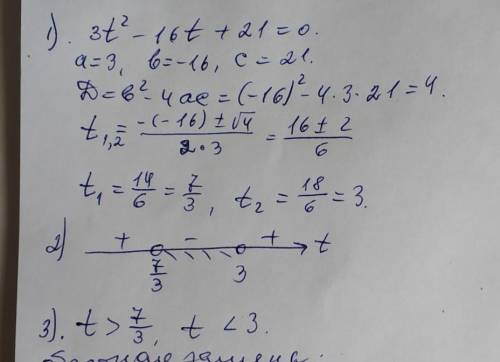 1). 3t² - 16t + 21 = 0.
a = 3, b = -16, c = 21.
D = b² - 4ac = (-16)² - 4·3·21 = 4.
t₁,₂ = (-(-16) ± √4)/(2·3) = (16 ± 2)/6
t₁ = 14/6 = 7/3, t₂ = 18/6 = 3.
2) + - + t
7/3 3
3). t > 7/3, t < 3.